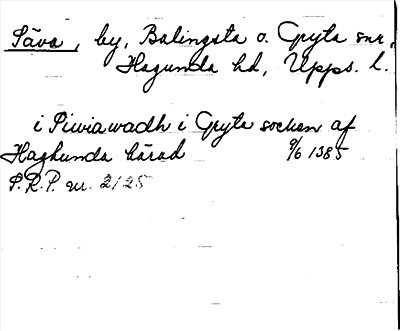 Säva, by, Balingsta o. Gryta snr,
Hagunda hd, Upps. l.
i Siwiawadh i Gryta socken af
Haghunda härad 9/6 1385
S.R.P. nr. 2125